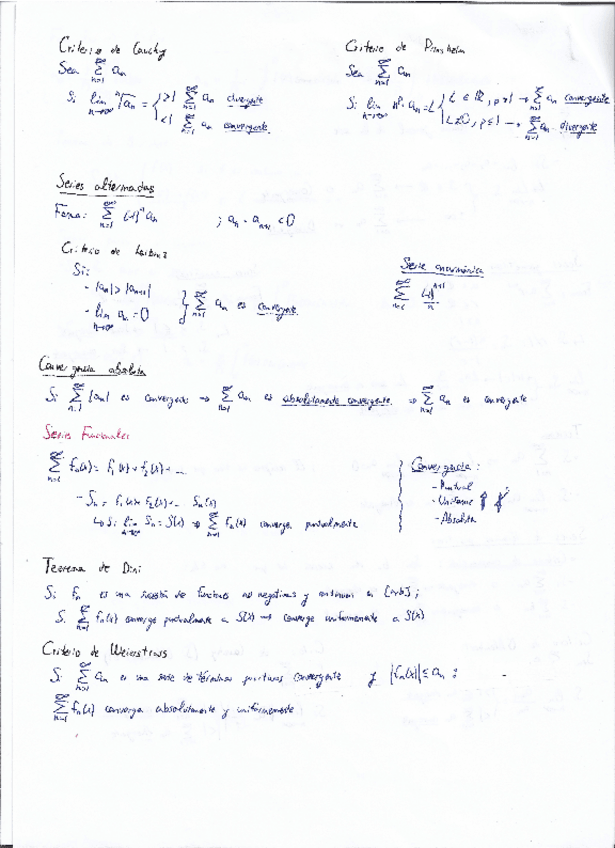 Criterio de Cauchy
Sea ∑_{n=1}^{∞} a_n
Si lim_{n→∞} ⁿ√a_n = { >1 ∑_{n=1}^{∞} a_n divergente
<1 ∑_{n=1}^{∞} a_n convergente
Criterio de Prinsheim
Sea ∑_{n=1}^{∞} a_n
Si lim_{n→∞} n^p · a_n = L { L ∈ ℝ, p>1 → ∑_{n=1}^{∞} a_n convergente
L ≠ 0, p≤1 → ∑_{n=1}^{∞} a_n divergente
Series alternadas
Forma: ∑_{n=1}^{∞} (-1)^n a_n ; a_n · a_{n+1} < 0
Criterio de Leibniz
Si:
- |a_n| > |a_{n+1}|
- lim_{n→∞} a_n = 0 } ∑_{n=1}^{∞} a_n es convergente
Serie anarmónica
∑_{n=1}^{∞} (-1)^{n+1}/n
Convergencia absoluta
Si ∑_{n=1}^{∞} |a_n| es convergente → ∑_{n=1}^{∞} a_n es absolutamente convergente → ∑_{n=1}^{∞} a_n es convergente
Series Funcionales
∑_{n=1}^{∞} f_n(x) = f_1(x) + f_2(x) + ...
- S_n = f_1(x) + f_2(x) + ... S_n(x)
↳ Si lim_{n→∞} S_n = S(x) → ∑_{n=1}^{∞} f_n(x) converge puntualmente
Convergencia:
- Puntual
- Uniforme
- Absoluta
Teorema de Dini
Si f_n es una sucesión de funciones no negativas y continuas en [a,b];
Si ∑_{n=1}^{∞} f_n(x) converge puntualmente a S(x) → converge uniformemente a S(x)
Criterio de Weierstrass
Si ∑_{n=1}^{∞} a_n es una serie de términos positivos convergente y |f_n(x)| ≤ a_n :
∑_{n=1}^{∞} f_n(x) converge absolutamente y uniformemente